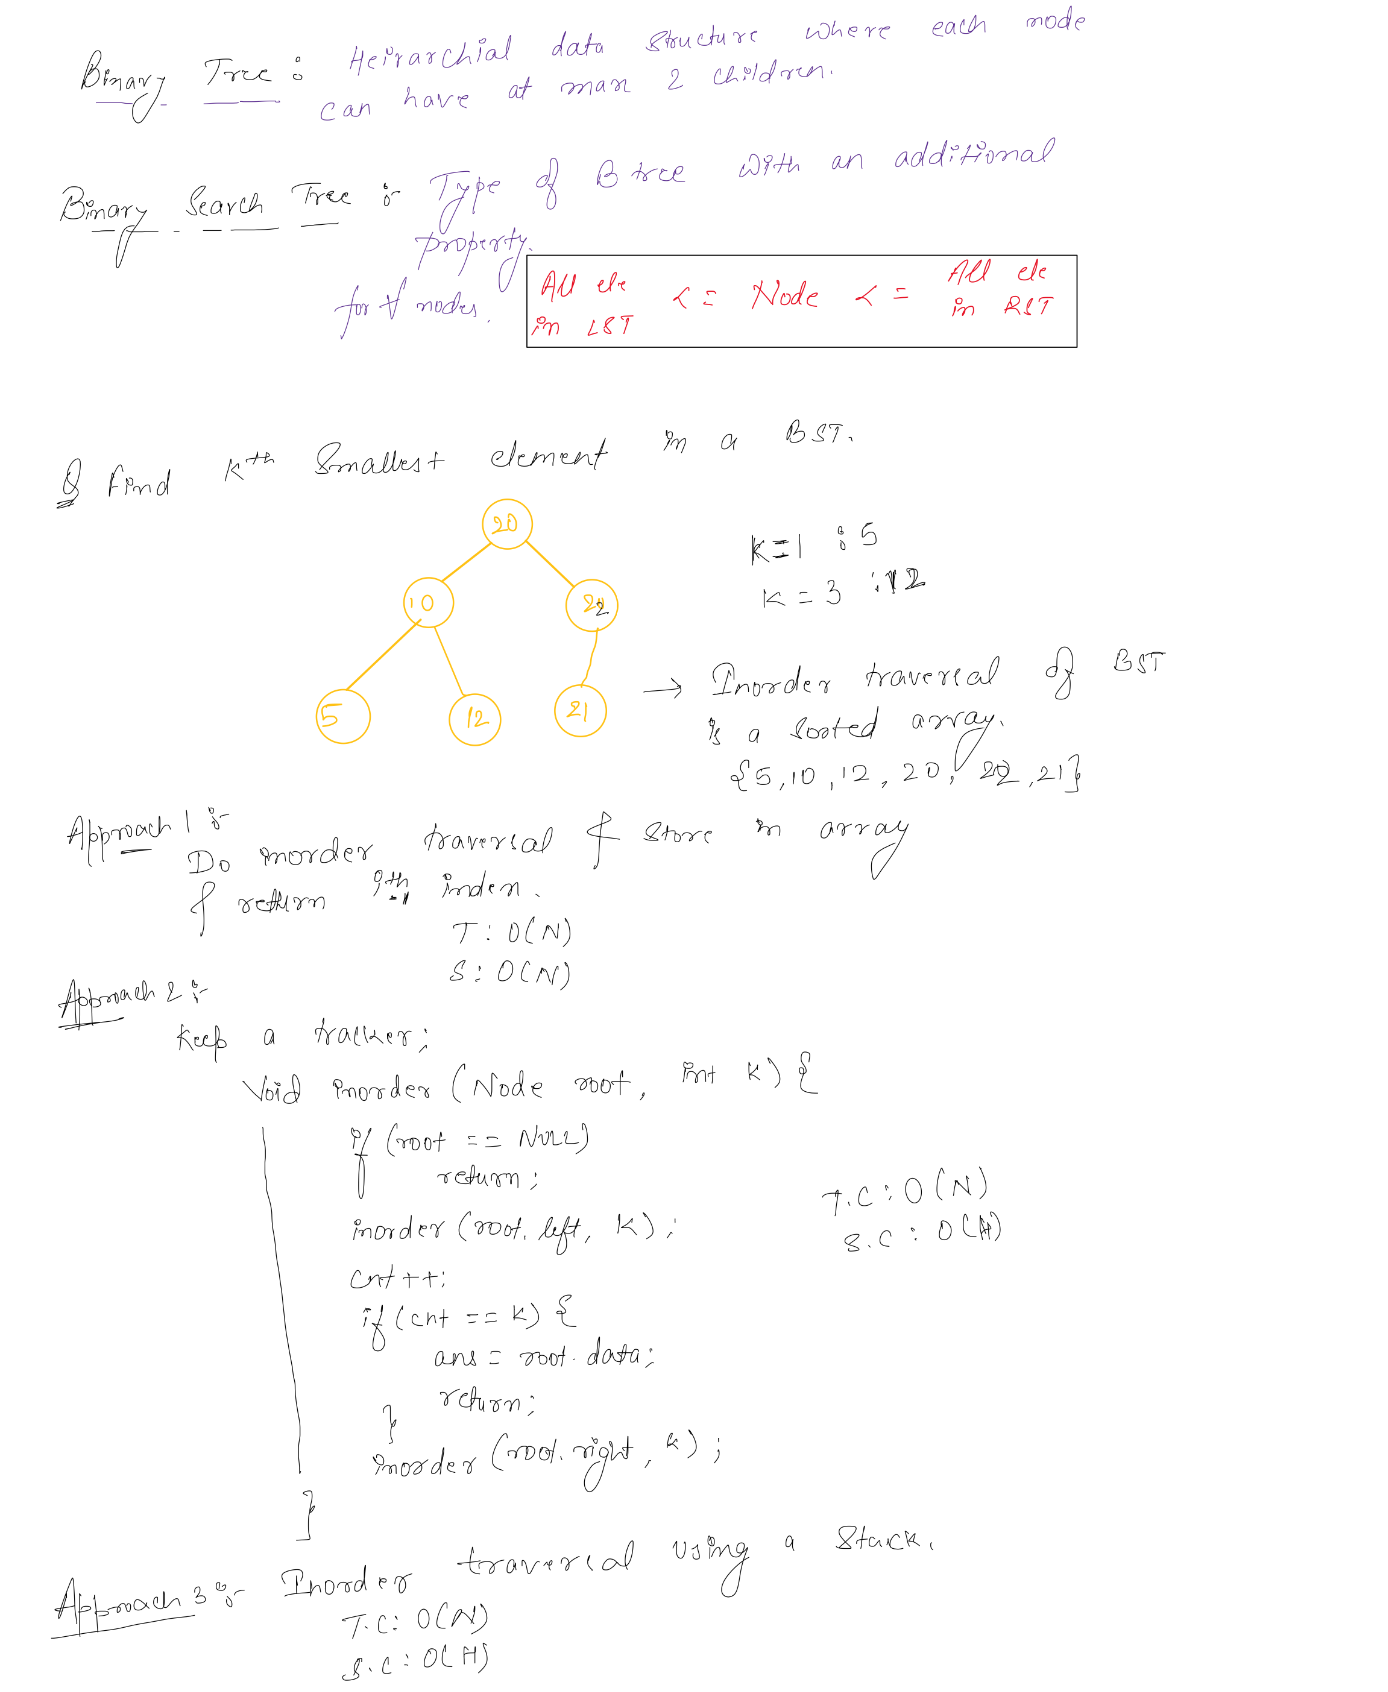 Binary Tree : Heirarchial data structure where each node
can have at max 2 children.
Binary Search Tree :- Type of B tree with an additional
property.
for ∀ nodes.
All ele in LST <= Node <= All ele in RST
Q Find Kth smallest element in a BST.
20
10
22
5
12
21
K=1 : 5
K = 3 : 12
→ Inorder traversal of BST
is a sorted array.
{5, 10, 12, 20, 22, 21}
Approach 1 :-
Do inorder traversal & store in array
& return ith-1 index.
T : O(N)
S : O(N)
Approach 2 :-
Keep a tracker;
Void inorder (Node root, int K) {
if (root == NULL)
return;
inorder (root.left, K);
cnt++;
if (cnt == K) {
ans = root.data;
return;
}
inorder (root.right, K);
}
T.C : O(N)
S.C : O(H)
Approach 3 :- Inorder traversal using a stack.
T.C : O(N)
S.C : O(H)